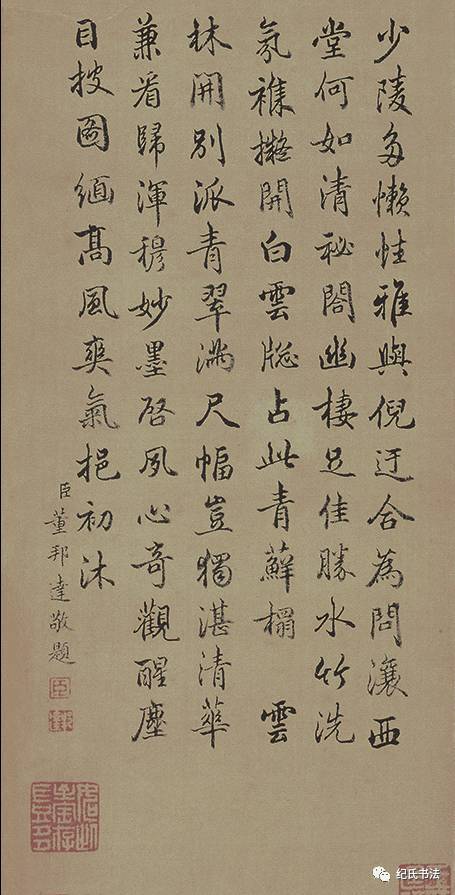 少陵多懶性雅與倪迂合為問瀼西
堂何如清祕閣幽棲足佳勝水竹洗
氛襍擬開白雲牕占此青蘚榻 雲
林開別派青翠滿尺幅豈獨湛清華
兼看歸渾穆妙墨啓夙心奇觀醒塵
目披圖緬高風爽氣挹初沐
臣董邦達敬題
纪氏书法